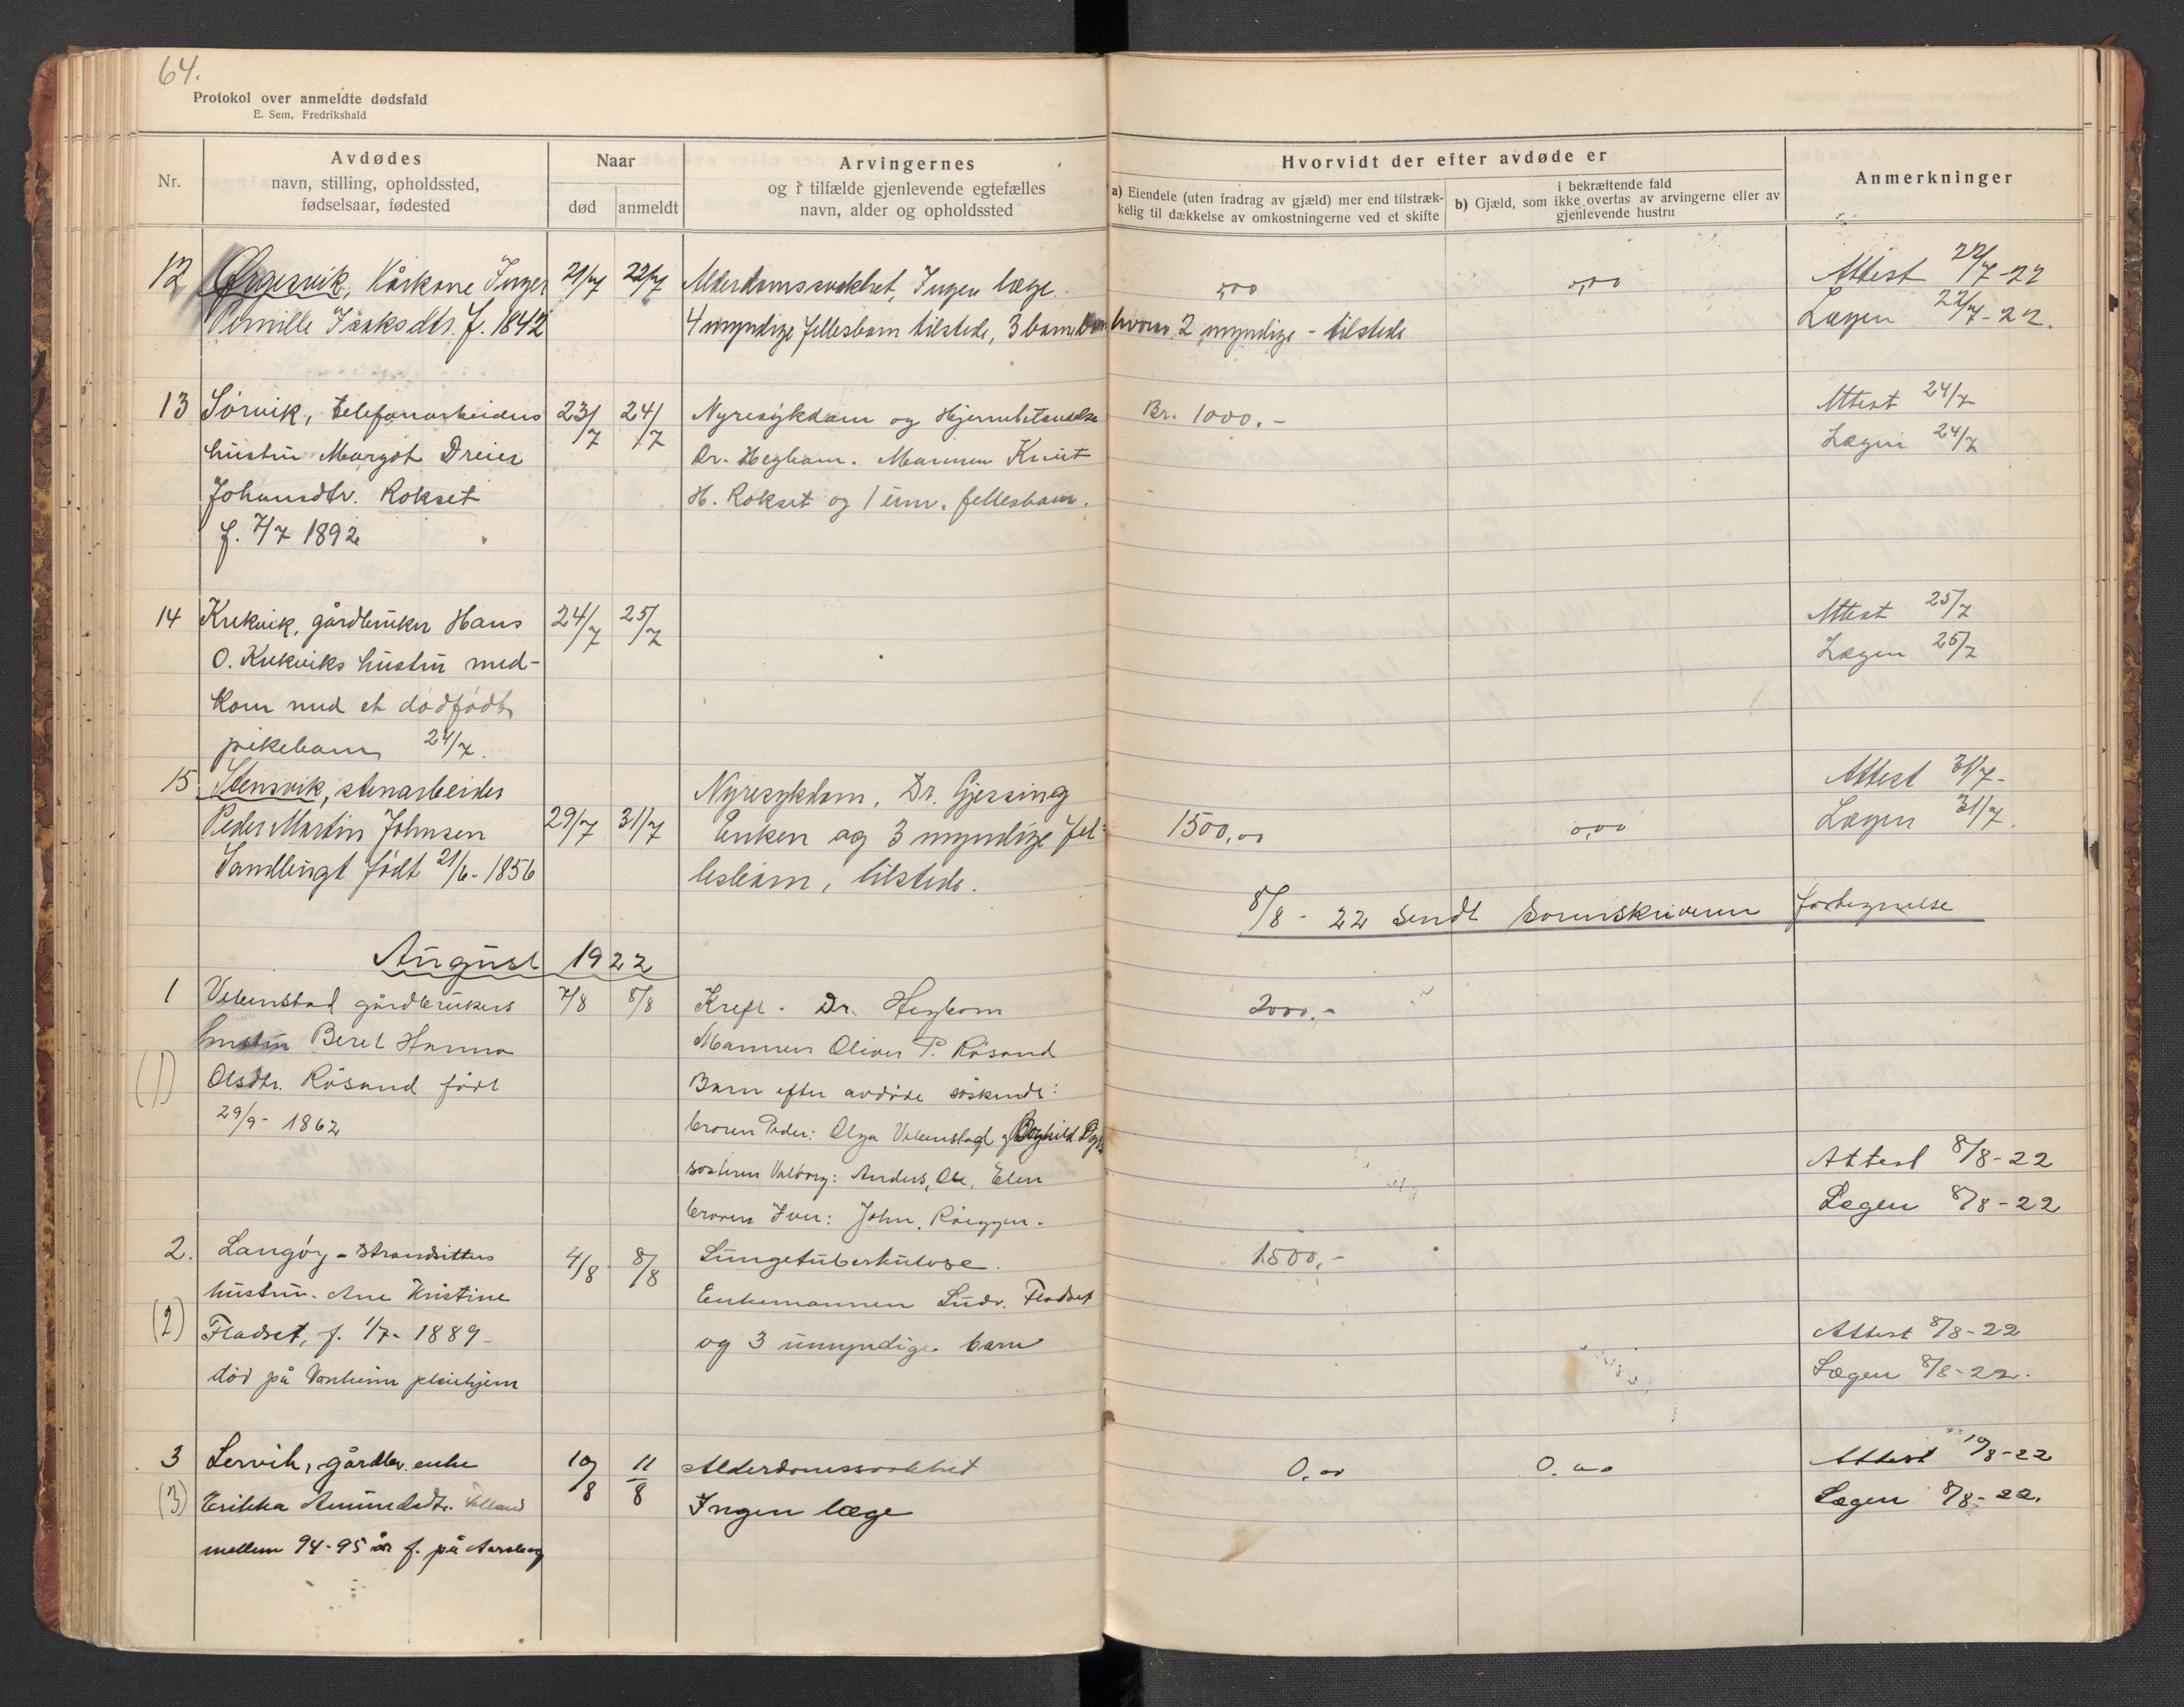 64.
Protokol over anmeldte dødsfald
E. Sem, Fredrikshald
Nr.
Avdødes
navn, stilling, opholdssted,
fødselsaar, fødested
Naar
død
anmeldt
Arvingernes
og i tilfælde gjenlevende egtefælles
navn, alder og opholdssted
Hvorvidt der efter avdøde er
a) Eiendele (uten fradrag av gjæld) mer end tilstræk-
kelig til dækkelse av omkostningerne ved et skifte
i bekræftende fald
b) Gjæld, som ikke overtas av arvingerne eller av
gjenlevende hustru
Anmerkninger
12 Ørgesvik, Kårkone Inger 21/7 22/7 Alderdomssvakhet, Ingen læge. 0,00 0,00 Attest 22/7-22
Pernille Isaksdtr. f. 1842 4 myndige fellesbarn tilstede, 3 barnebarn hvorav 2 myndige - tilstede Lægen 22/7-22.
13 Sørvik, telefonarbeiders 23/7 24/7 Nyresykdom og Hjernebetændelse Br. 1000.- Attest 24/7
hustru Margot Dreier Dr. Hegbom. Mannen Knut Lægen 24/7
Johansdtr. Rokset H. Rokset og 1 um. fellesbarn.
f. 7/7 1892
14 Krekvik, gårdbruker Hans 24/7 25/7 Attest 25/7
O. Krekviks hustru ned- Lægen 25/7
kom med et dødfødt
pikebarn 24/7.
15 Stensvik, stenarbeider Nyresykdom, Dr. Gjessing Attest 31/7-
Peder Martin Johnsen 29/7 31/7 Enken og 3 myndige fel- 1500,00 0,00 Lægen 31/7.
Sandbugt født 21/6-1856 lesbarn, tilstede.
8/8-22 sendt Sorenskriveren fortegnelse
August 1922
1 Vebenstad gårdbrukers 7/8 8/8 Kreft - Dr. Hegbom 2000,-
hustru Beret Hanna Mannen Oliver P. Røsand
(1) Olsdtr. Røsand født Barn efter avdøde søskende:
29/9-1862 broren Peder: Olga Vebenstad og Borghild
søsteren Valborg: Anders, Ole, Elen Attest 8/8-22
broren Iver: John, Røeggen. Lægen 8/8-22
2. Langøy - Strandsitters 4/8 8/8 Lungetuberkulose. 1500,-
hustru. Ane Kristine Enkemannen Ludv. Fladset
(2) Fladset, f. 1/7-1889- og 3 umyndige barn Attest 8/8-22
død på Vonheim pleiehjem Lægen 8/8-22.
3 Lervik, gårdbr. enke 10/8 11/8 Alderdomssvakhet 0,00 0,00 Attest 10/8-22
(3) Erikka Amundsdtr. Ingen læge Lægen 8/8-22.
mellem 94-95 år f. på